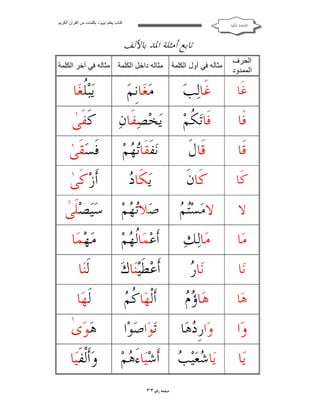 كتاب يعلم بيبوت بكلمات من القرآن الكريم
تابع أمثلة المد بالألف
الحرف الممدود مثاله في أول الكلمة مثاله داخل الكلمة مثاله في آخر الكلمة
غَا غَالِبَ مَغَانِمَ يَبْلُغَا
فَا فَاتَكُمْ يَخْصِفَانِ كَفَىٰ
قَا قَالَ نَفَقَاتُهُمْ فَسَقَىٰ
كَا كَانَ يَكَادُ أَزْكَىٰ
لا لامَسْتُمُ صَلاتُهُمْ سَيَصْلَىٰ
مَا مَالِكِ أَعْمَالُهُمْ مَهْمَا
نَا نَارُ أَعْطَيْنَاكَ لَنَا
هَا هَاؤُمُ أَلْهَاكُمُ لَهَا
وَا وَارِدُهَا تَوَاصَوْا هَوَىٰ
يَا يَاشُعَيْبُ أَشْيَاءَهُمْ وَأَلْفَيَا
صفحة رقم ٣٣